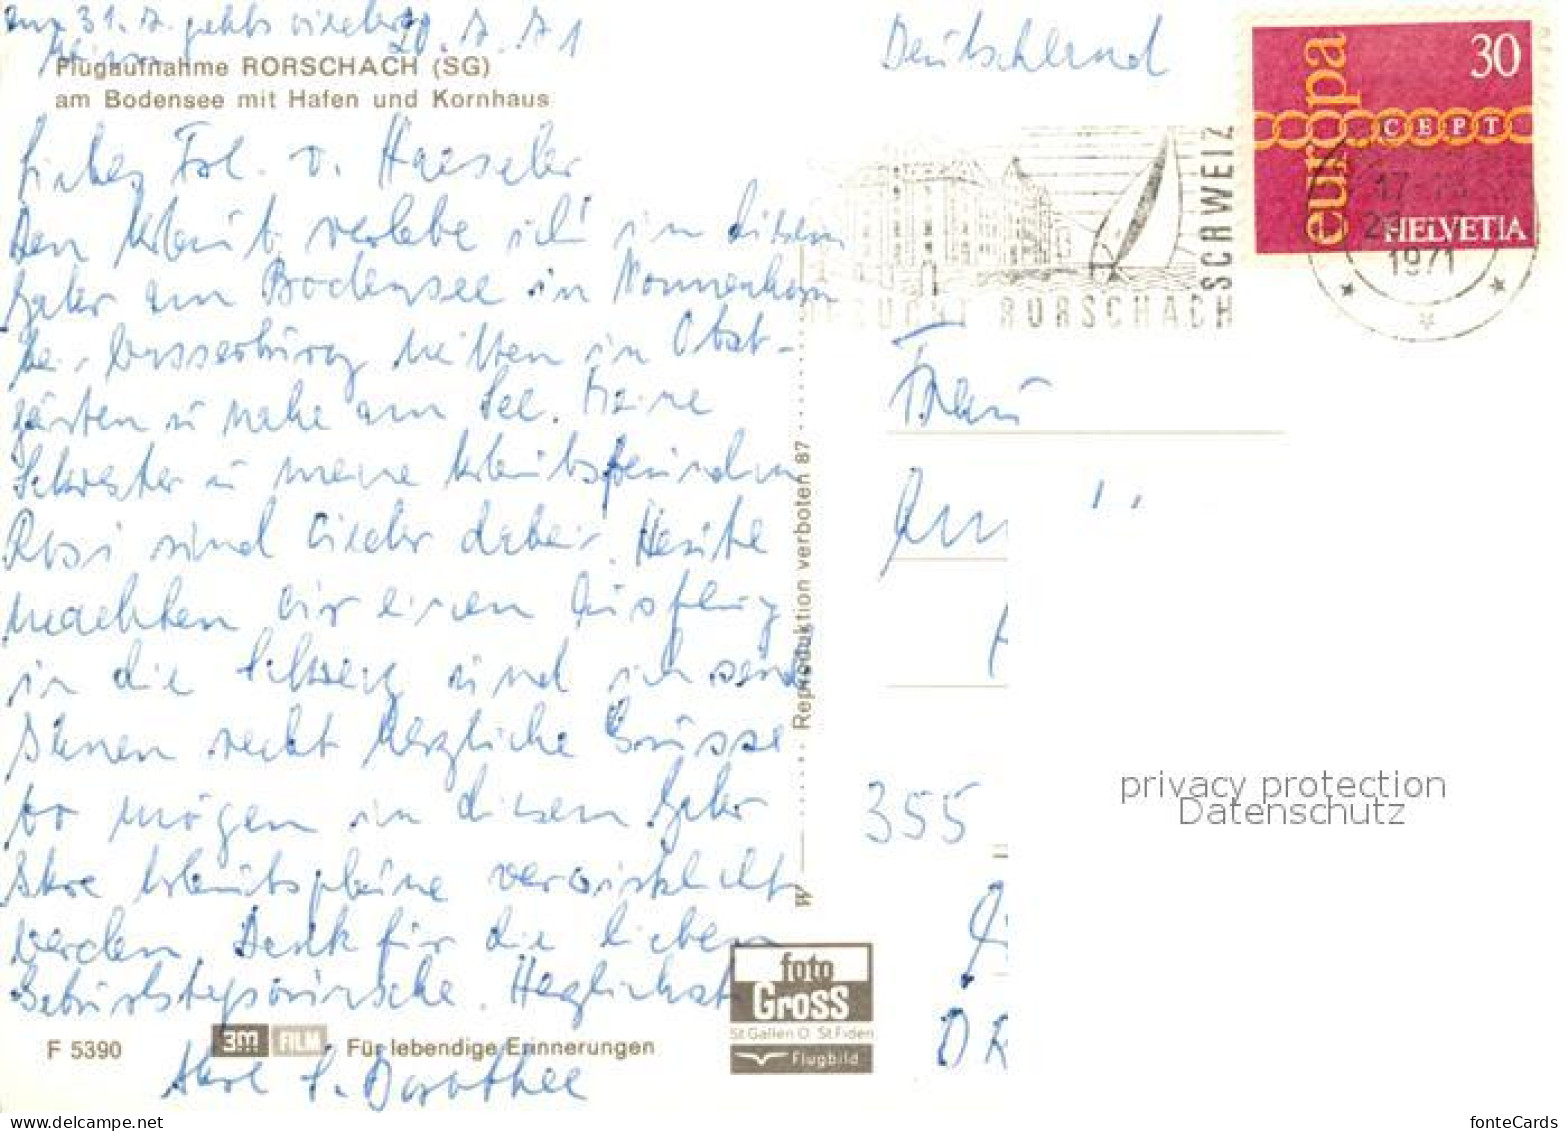 am 31. 7. gehts wieder
20. 7. 71
Flugaufnahme RORSCHACH (SG)
am Bodensee mit Hafen und Kornhaus
Liebes Frl. v. Haeseler
Den Urlaub verlebe ich in diesem
Jahr am Bodensee in Nonnenhorn
bei Wasserburg mitten in Obst-
gärten u nahe am See. Meine
Schwester u meine Urlaubsfreundin
Rosi sind wieder dabei. Heute
machten wir einen Ausflug
in die Schweiz und ich sende
Ihnen recht herzliche Grüsse
wo mögen in diesem Jahr
Ihre Urlaubspläne verwirklicht
werden. Dank für die lieben
Geburtstagswünsche. Herzlichst
Ihre S. Dorothee
F 5390
3M FILM Für lebendige Erinnerungen
Reproduktion verboten 87
foto
Gross
St. Gallen O. St. Fiden
Flugbild
Deutschland
SCHWEIZ
BESUCHT RORSCHACH
europa
30
CEPT
HELVETIA
1971
Frau
355
privacy protection
Datenschutz
fonteCards